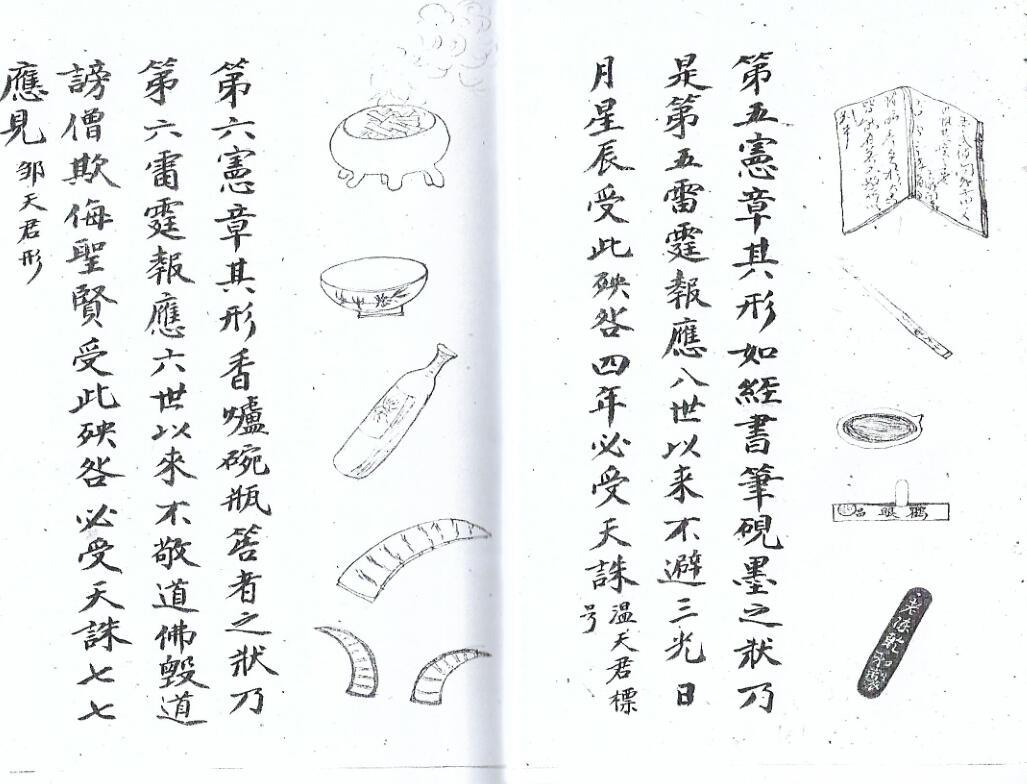 第五憲章其形如經書筆硯墨之狀乃
是第五雷霆報應八世以来不避三光日
月星辰受此殃咎四年必受天誅
温天君標
号
第六憲章其形香爐碗瓶筶者之狀乃
第六雷霆報應六世以來不敬道佛毀道
謗僧欺侮聖賢受此殃咎必受天誅七七
應見
邹天君形